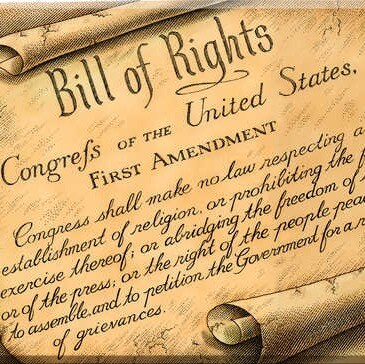 Bill of Rights
Congreſs OF THE United States,
FIRST AMENDMENT
Congress shall make no law respecting a
establishment of religion, or prohibiting the f
exercise thereof; or abridging the freedom of
or of the press; or the right of the people peac
to assemble, and to petition the Government for a r
of grievances.